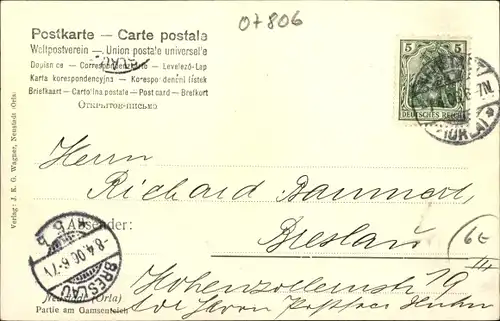 07806
Postkarte — Carte postale
Weltpostverein — Union postale universelle
Dopisnice — Correspondenzkarte — Levelező-Lap
Karta korespondencyjna — Korespondenční lístek
Briefkaart — Cartolina postale — Post card — Brefkort
Открытое письмо
5 5
DEUTSCHES REICH
(ORLA)
6-7N.
Verlag: J. K. G. Wagner, Neustadt (Orla)
Herrn
Richard Baumert,
Absender:
Breslau
6E
BRESLAU
-8.4.06.6-7V
Hohenzollernstr. 79
Neustadt (Orla)
Partie am Gamsenteich